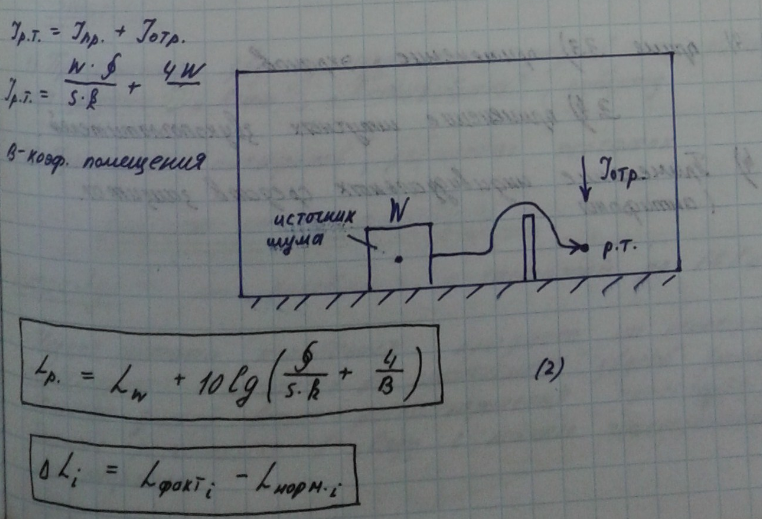 Jр.т. = Jпр. + Jотр.
Jр.т. = W·ф/S·k + 4W/
B-коэф. помещения
источник шума
W
Jотр.
р.т.
Lр. = Lw + 10lg(ф/S·k + 4/B) (2)
ΔLi = Lфактi - Lнорм.i